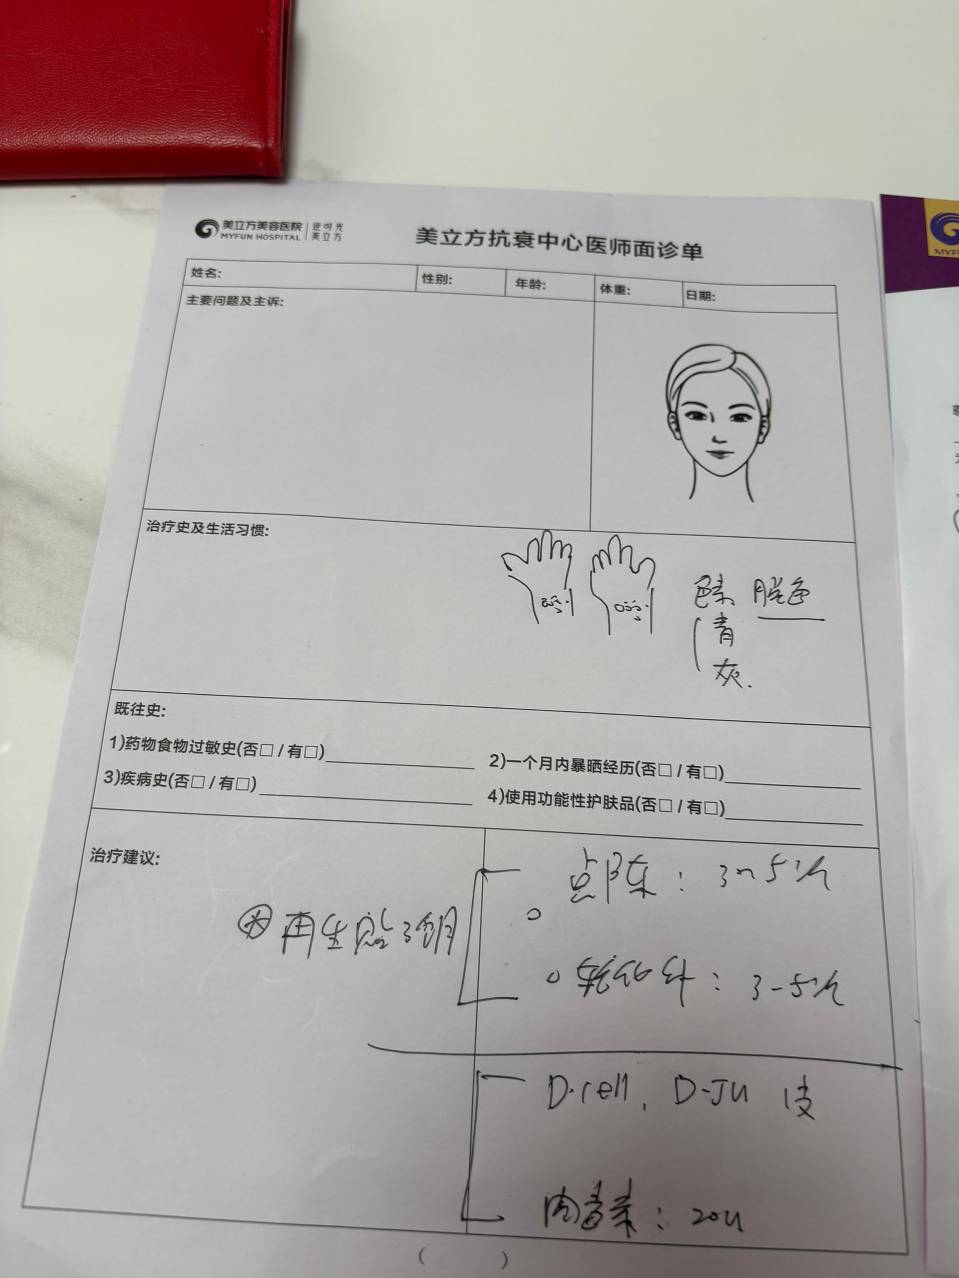 美立方美容医院
MYFUN HOSPITAL
逆时光
美立方
美立方抗衰中心医师面诊单
MYF
姓名:
性别:
年龄:
体重:
日期:
主要问题及主诉:
治疗史及生活习惯:
色素 脱色
青
灰.
既往史:
1)药物食物过敏史(否□ / 有□)
2)一个月内暴晒经历(否□ / 有□)
3)疾病史(否□ / 有□)
4)使用功能性护肤品(否□ / 有□)
治疗建议:
点阵: 3~5次
再生
针: 3-5次
D·cell, D-JU
肉毒素: 20u
( )